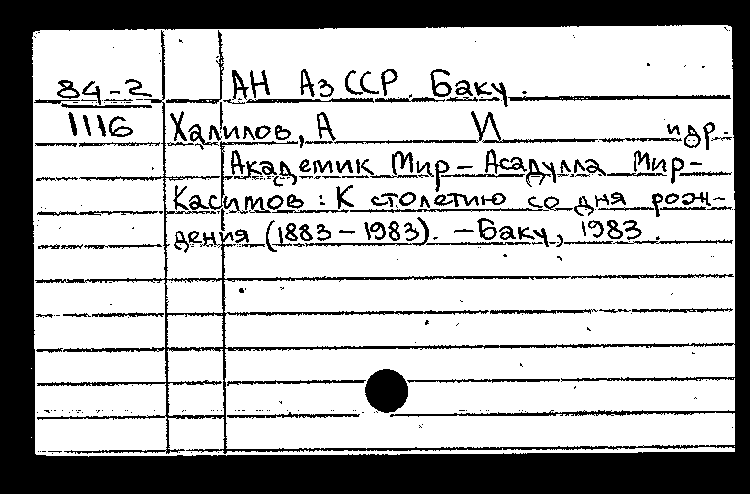 84-2 АН АзССР. Баку.
1116 Халилов, А И и др.
Академик Мир-Асадулла Мир-
Касимов: К столетию со дня рож-
дения (1883-1983). -Баку, 1983.